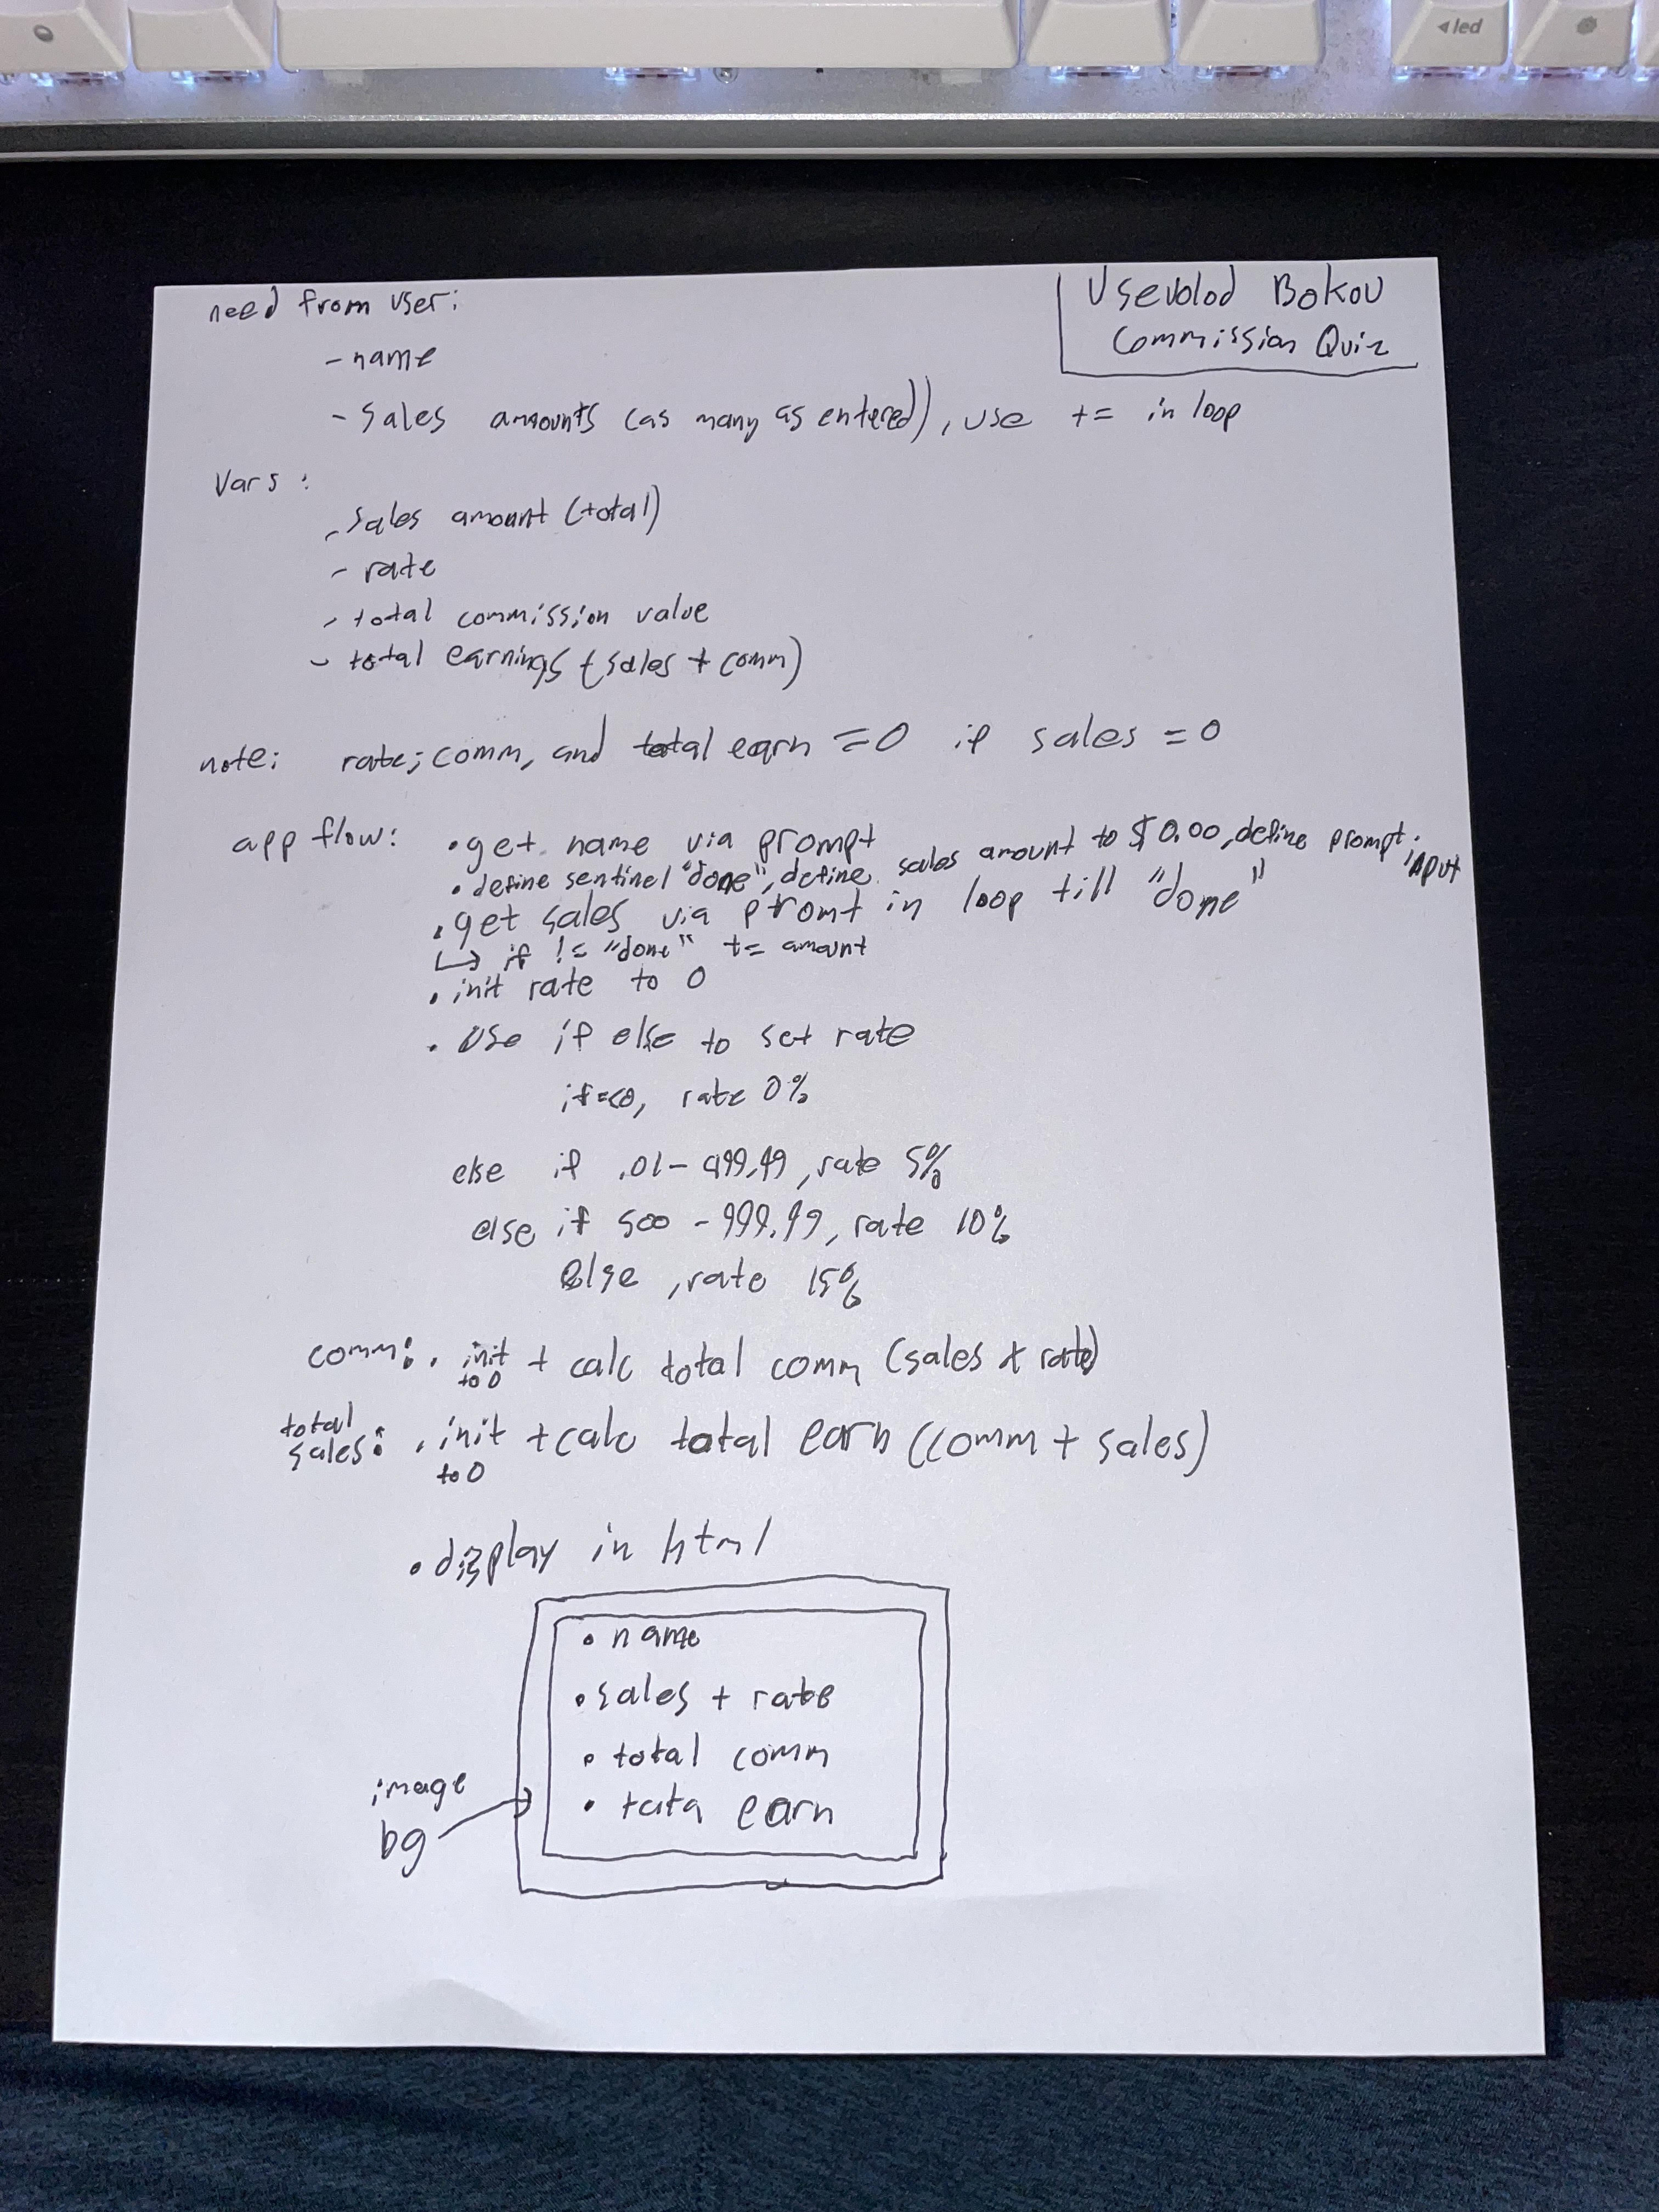 ◂led
need from user:
Vsevolod Bokov
Commission Quiz
- name
- sales amounts (as many as entered)), use += in loop
Vars:
- sales amount (total)
- rate
- total commission value
- total earnings (sales + comm)
note: rate; comm, and total earn = 0 if sales = 0
app flow: • get name via prompt
• define sentinel "done", define sales amount to $0.00, define prompt input
• get sales via promt in loop till "done"
↳ if != "done" += amount
• init rate to 0
• Use if else to set rate
if =<0, rate 0%
else if .01 - 499.99, rate 5%
else if 500 - 999.99, rate 10%
else, rate 15%
comm: • init to 0 + calc total comm (sales * rate)
total sales: • init to 0 + calc total earn (comm + sales)
• display in html
• name
• sales + rate
• total comm
• tota earn
image
bg